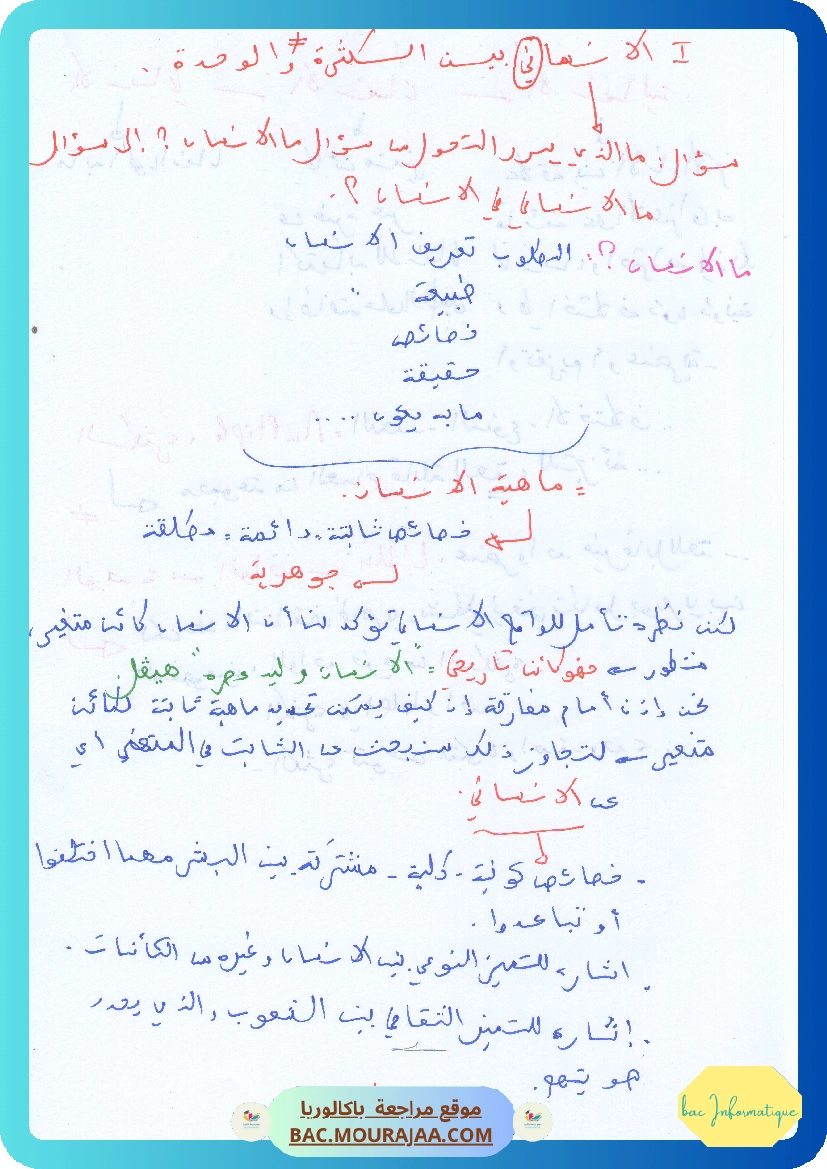 I الانساني بين الكثرة ≠ والوحدة .
سؤال: ما الذي يبرر التحول من سؤال ما الانسان ؟ إلى سؤال
ما الانساني في الانسان ؟.
ما الانسان ؟: المطلوب تعريف الانسان
طبيعة
خصائص
حقيقة
ما به يكون ....
= ماهية الانسان.
خصائص ثابتة، دائمة، مطلقة
جوهرية
لكن نظرة تأمل للواقع الانساني تؤكد لنا أن الانسان كائن متغير،
متطور فهو كائن تاريخي = "الانسان وليد عصره" هيڤل
نحن إذن أمام مفارقة إذ كيف يمكن تحديد ماهية ثابتة لكائن
متغير لتجاوز ذلك سنبحث عن الثابت في المتغير أي
عن الانساني.
- خصائص كونية - كلية - مشتركة بين البشر مهما اختلفوا
أو تباعدوا .
. إشارة للتميز النوعي بين الانسان وغيره من الكائنات .
. إشارة للتميز الثقافي بين الشعوب والذي
هويتهم.
موقع مراجعة باكالوريا
BAC.MOURAJAA.COM
bac Informatique